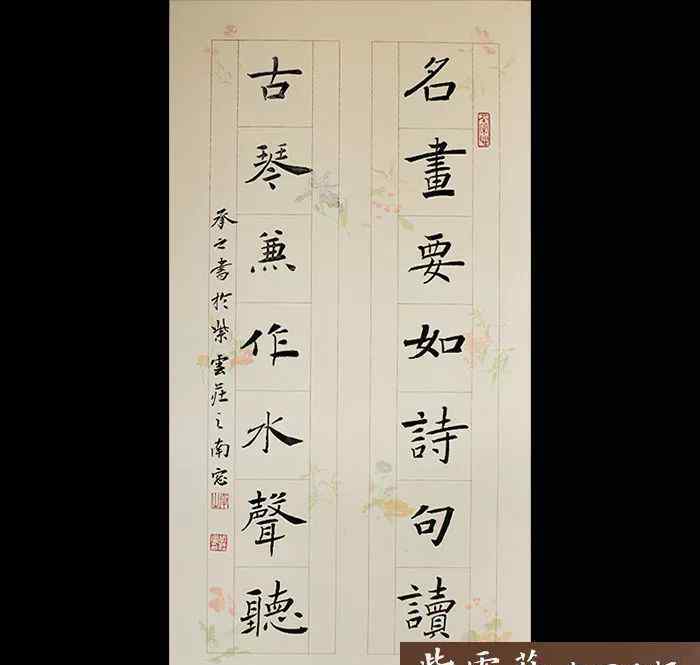 名畫要如詩句讀
古琴兼作水聲聽
承之書於紫雲莊之南窓
紫雲莊